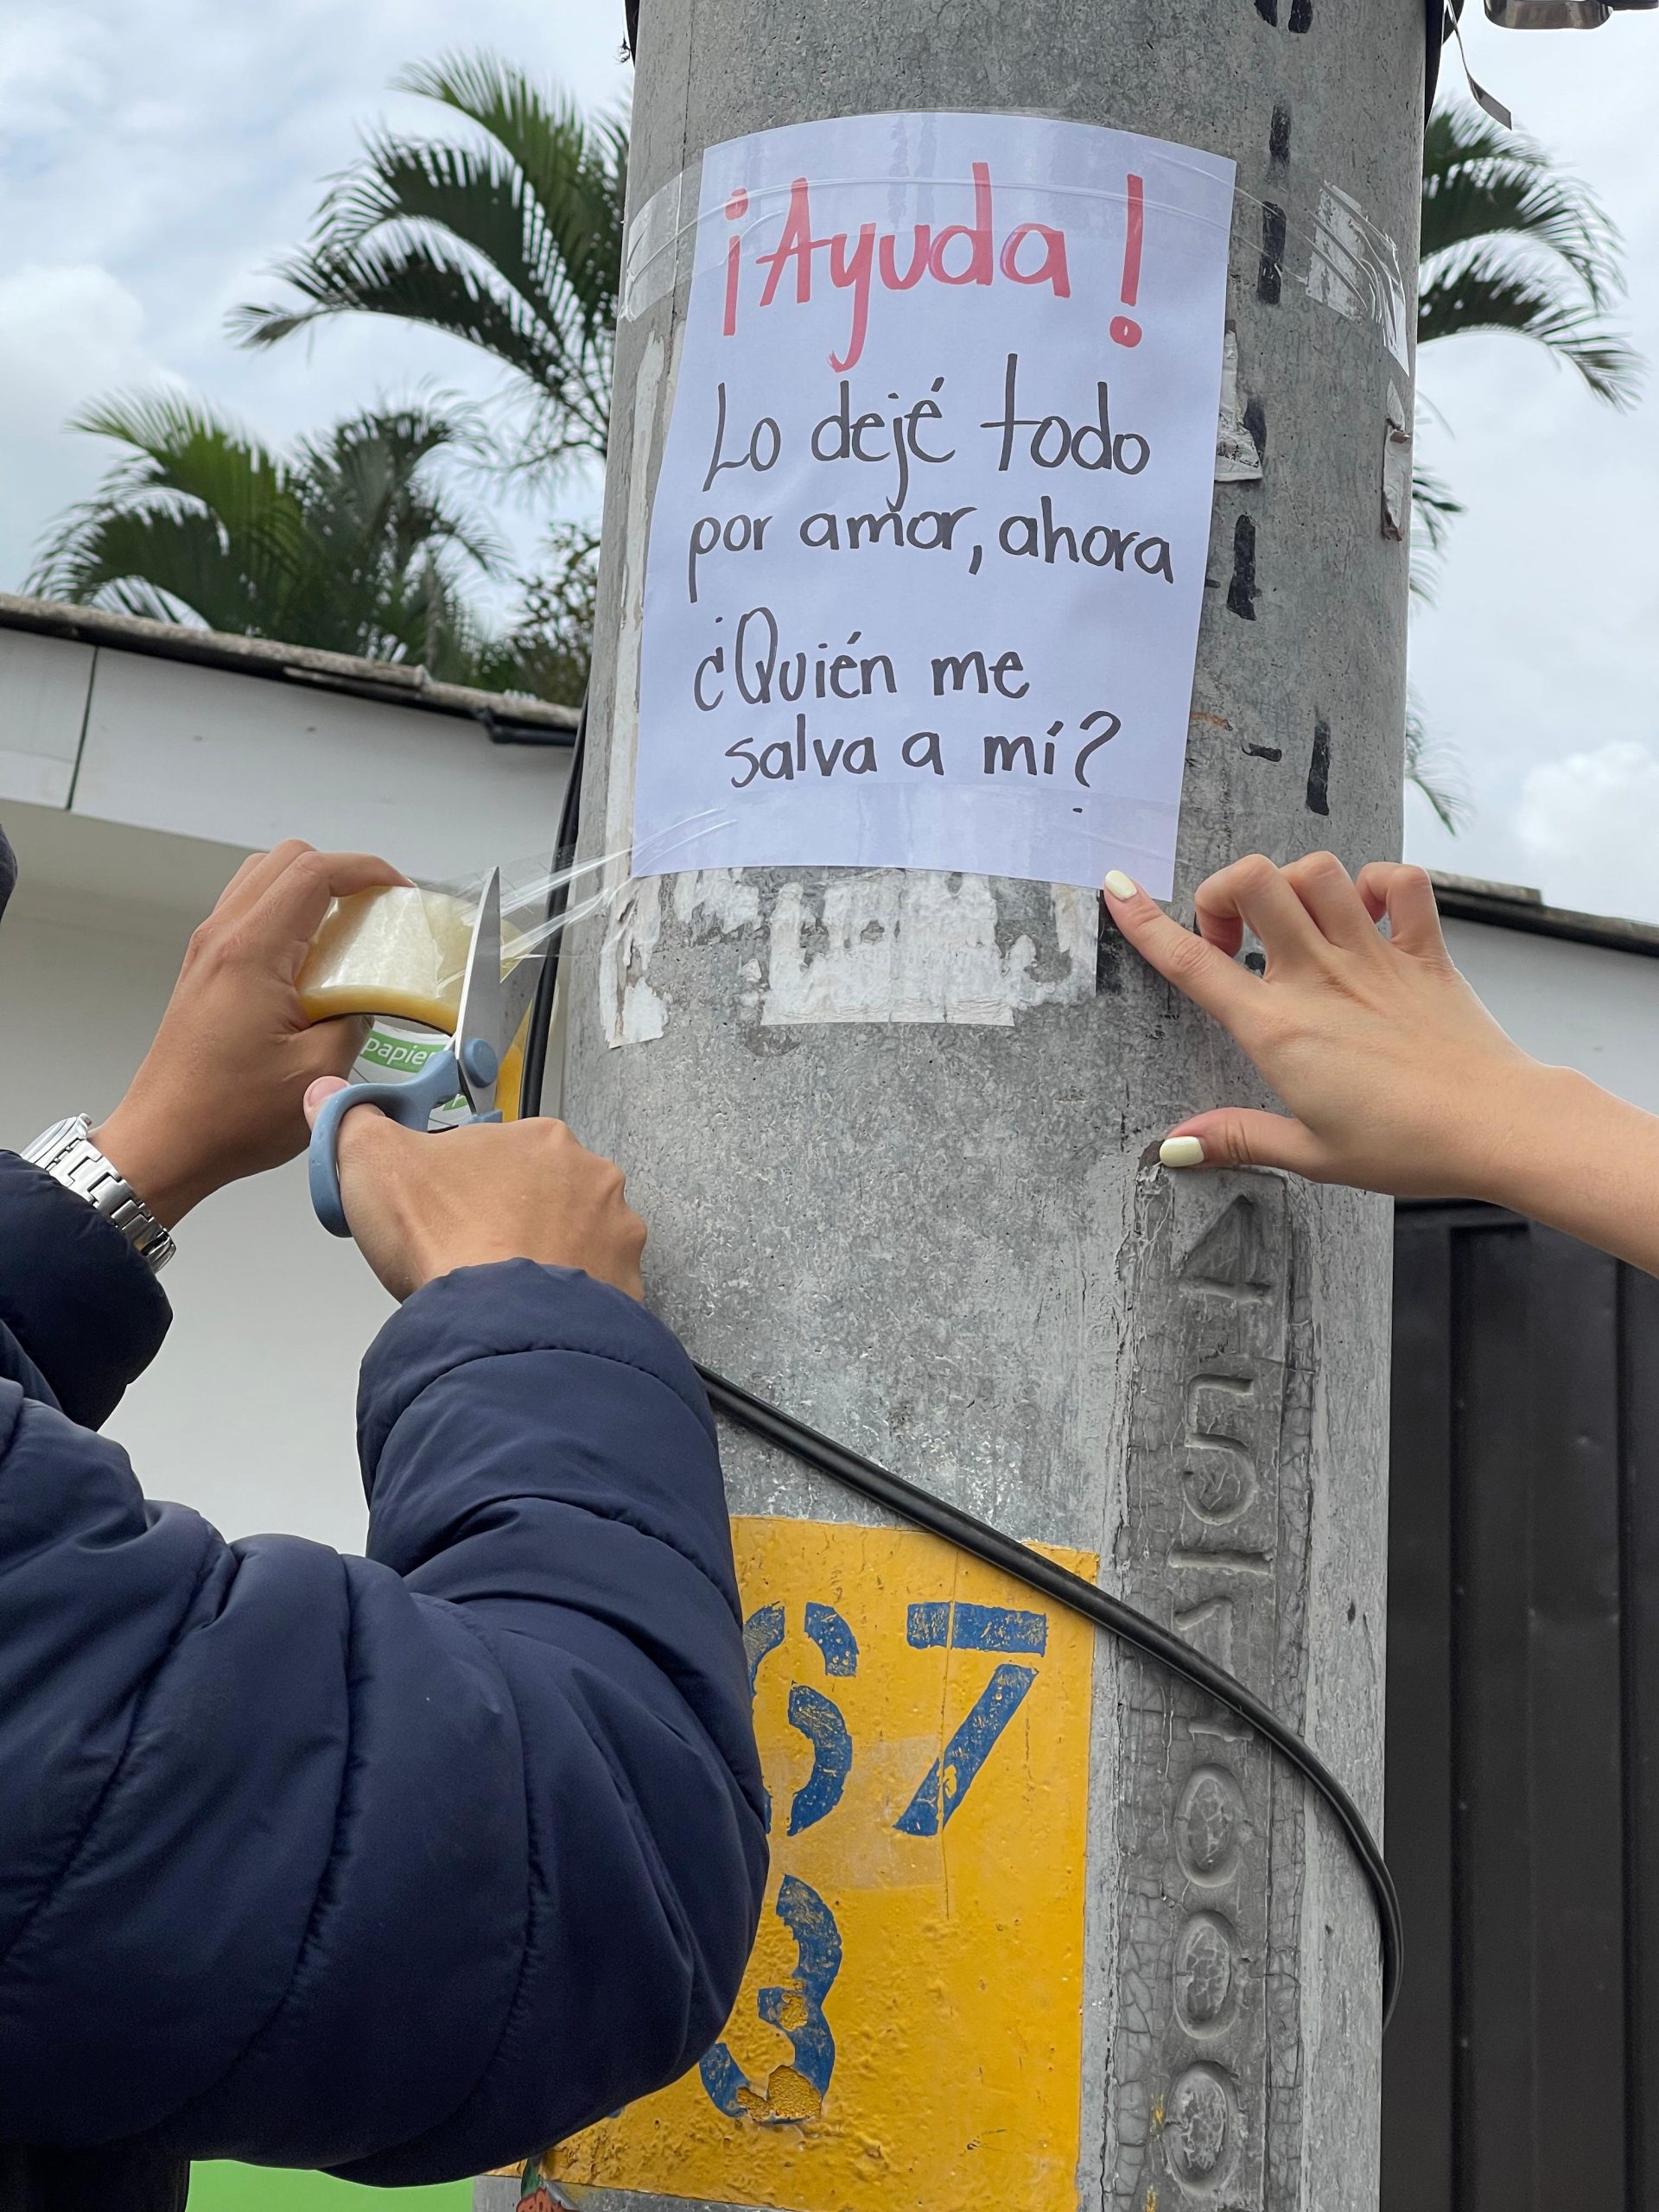 ¡Ayuda!
Lo dejé todo
por amor, ahora
¿Quién me
salva a mí?
papier
67
3